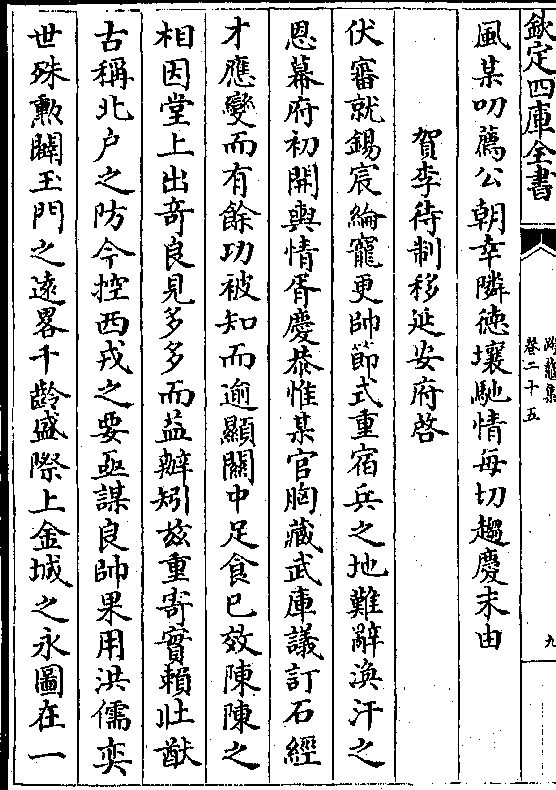 欽定四庫全書
跨鼇集
卷二十五
九
風某叨薦公朝幸隣徳壤馳情每切趨慶未由
賀李待制移延安府啓
伏審就錫宸綸寵更帥節式重宿兵之地難辭渙汗之
恩幕府初開輿情胥慶恭惟某官胸藏武庫議訂石經
才應變而有餘功被知而逾顯關中足食已效陳陳之
相因堂上出竒良見多多而益辦矧兹重寄實賴壯猷
古稱北户之防今控西戎之要亟謀良帥果用洪儒奕
世殊勲闢玉門之遠畧千齡盛際上金城之永圖在一